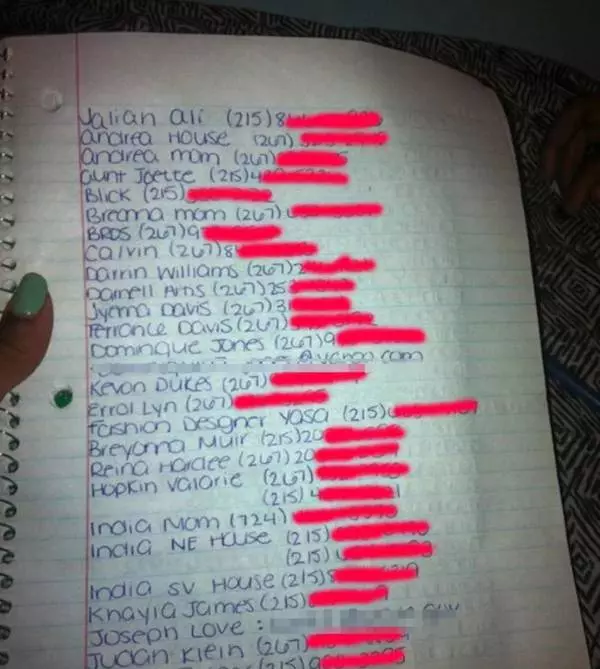 Jalian Ali (215)8
Andrea House (267)
Andrea mom (267)
Aunt Joette (215)4
Blick (215)
Breanna mom (267)
BROS (267)9
Calvin (267)8
Darrin Williams (267)2
Darnell Arns (267)25
Jyema Davis (267)3
Terrance Davis (267)
Dominque Jones (267)9
@yahoo.com
Kevon Dukes (267)
Errol Lyn (267)
Fashion Designer Yasa (215)
Breyanna Muir (215)20
Reina Hardee (267)20
Hopkin Valarie (267)
(215)4
India Mom (724)
India NE House (215)
(215)
India SV House (215)8
Khayla James (215)
Joseph Love :
Judan Klein (267)
(215)9